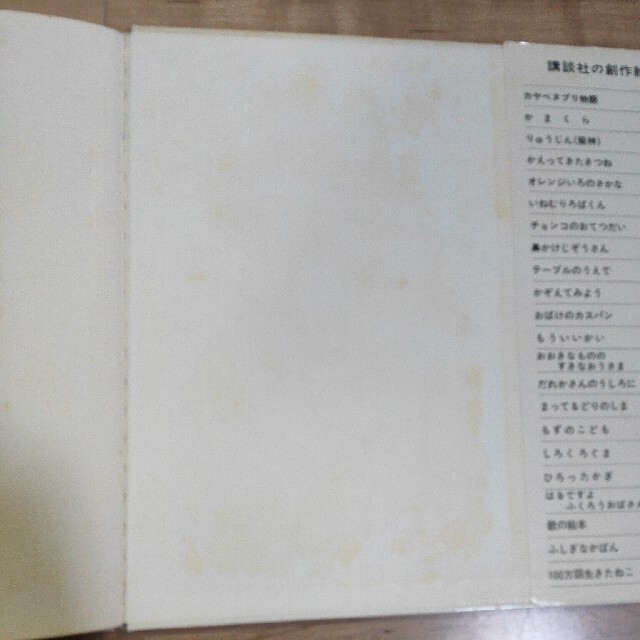 講談社の創作
カヤベヌプリ物語
かまくら
りゅうじん(龍神)
かえってきたきつね
オレンジいろのさかな
いねむりろばくん
チョンコのおてつだい
鼻かけじぞうさん
テーブルのうえで
かぞえてみよう
おばけのカスパン
もういいかい
おおきなものの
すきなおうさま
だれかさんのうしろに
まってるどりのしま
もずのこども
しろくろぐま
ひろったかぎ
はるですよ
ふくろうおばさ
歌の絵本
ふしぎなかばん
100万回生きたねこ